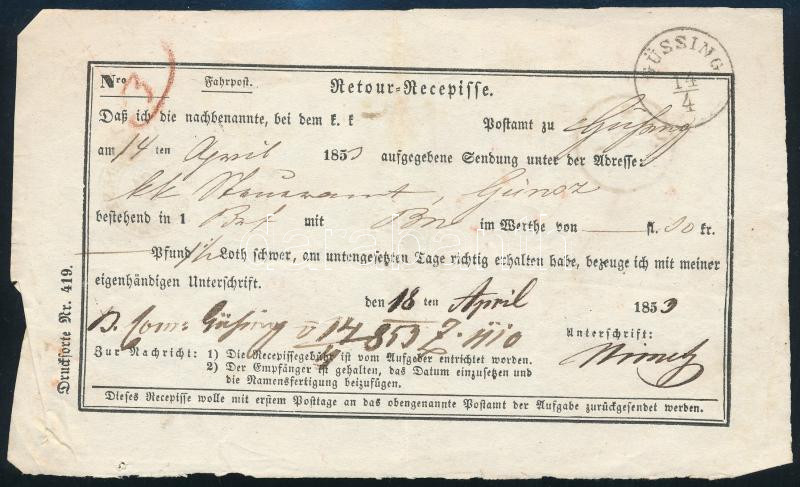 GÜSSING
14
4
3
Nro Fahrpost. Retour-Recepisse.
Daß ich die nachbenannte, bei dem k. k Postamt zu
am 14 ten April 1853 aufgegebene Sendung unter der Adresse:
kk Steueramt, Günsz
bestehend in 1 Brf mit Bn im Werthe von — fl. 30 kr.
— Pfund 1/2 Loth schwer, am untengesetzten Tage richtig erhalten habe, bezeuge ich mit meiner
eigenhändigen Unterschrift.
den 18 ten April 1853
14 853 Z.
Unterschrift:
Zur Nachricht: 1) Die Recepissegebühr ist vom Aufgeber entrichtet worden.
2) Der Empfänger ist gehalten, das Datum einzusetzen und
die Namensfertigung beizufügen.
Dieses Recepisse wolle mit erstem Posttage an das obengenannte Postamt der Aufgabe zurückgesendet werden.
Drucksorte Nr. 419.